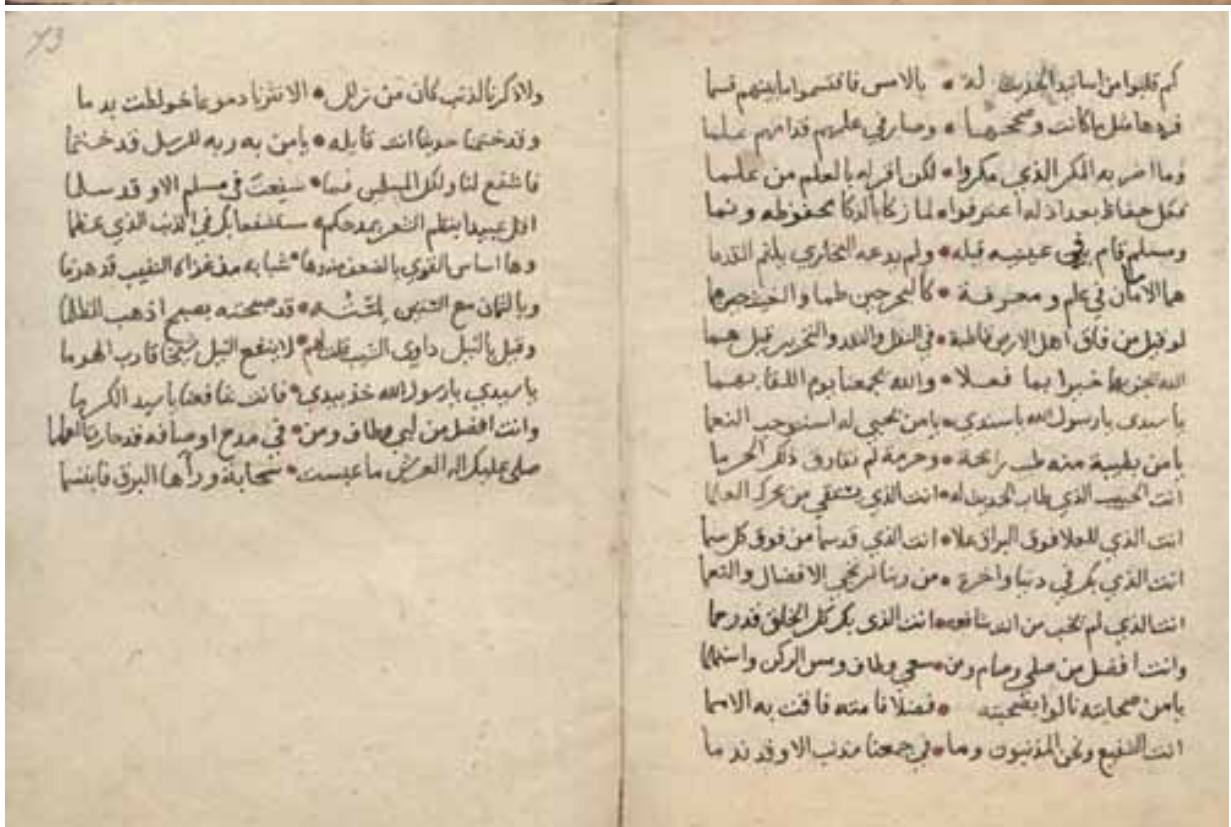 كم قلبوا من اسانيد الحديث له • بالامس فاقتسموا ما بينهم قسما
فردها مثل ما كانت وصححها • وصار في علمهم قدامهم علما
وما اضر به المكر الذي مكروا • لكن اقر له بالعلم من علما
فكل حفاظ بغداد له اعترفوا • لما زكا بالذكا محفوظه ونما
ومسلم قام بين عينيه قبله • ولم يدعه البخاري يلثم القدما
هما الامامان في علم ومعرفة • كالبحرجين طما والغيث
لو قيل من فاق اهل الارض قاطبة • في النقل والنقد والتحرير قيل هما
الله خيرا بما فعلا • والله يجمعنا يوم اللقا بهما
يا سيدي يا رسول الله يا سندي • يا من يحبي له استوجب النعما
يا من بطيبة منه طيب رائحة • وحرمة لم تفارق ذلك الحرما
انت الحبيب الذي طاب الحديث له • انت الذي يستقي من بحرك العلما
انت الذي للعلا فوق البراق علا • انت الذي قد سما من فوق كل سما
انت الذي بك في دنيا واخرة • من ربنا نرتجي الافضال والنعما
انت الذي لم يخب من انت شافعه • انت الذي بك كل الخلق قد رحما
وانت افضل من صلي وصام ومن • سعي وطاف ومس الركن واستلما
يا من صحابته نالوا بصحبته • فضلا فامته فاقت به الامما
انت الشفيع ونحن المذنبون وما • في جمعنا مذنب الا وقد ندما
73
ولا ذكرنا لذنب كان من زلل • الا نثرنا دموعا خولطت بدما
وقد ختمنا حديثا انت قايله • يا من به ربه للرسل قد ختما
فاشفع لنا ولكل المسلمين فما • شفعت في مسلم الا وقد سلما
اقل عبيدا بنظم الشعر يمدحكم • مستشفعا بك في الذنب الذي عظما
وها اساس القوي بالضعف • شبابه مذ غزاه الشيب قد هرما
وبالثمان مع الستين • قد صبحته بصبح اذهب الظلما
وقيل بالنبل داوي الشيب قلت لهم • لا ينفع النبل شيخا قارب الهرما
يا سيدي يا رسول الله خذ بيدي • فانت شافعنا يا سيد الكرما
وانت افضل من لبي وطاف ومن • في مدح اوصافه قد حارت العلما
صلى عليك اله العرش ما عبست • سحابة وراها البرق فابتسما